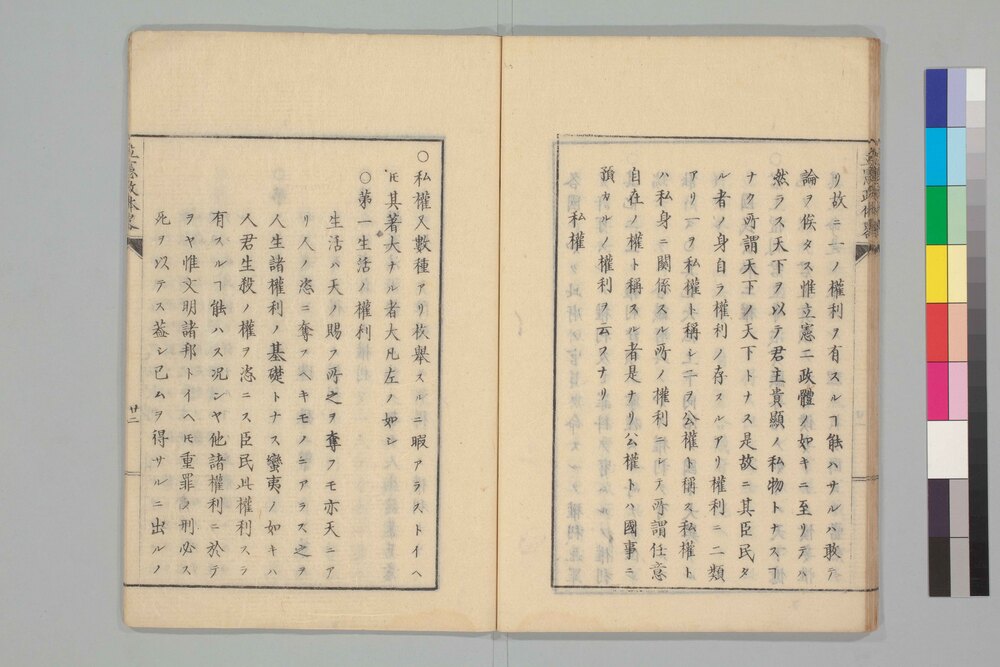 立憲政體略
リ故ニ一ノ權利ヲ有スルヿ能ハサルハ敢テ
論ヲ俟タス惟立憲二政體ノ如キニ至リテハ
然ラス天下ヲ以テ君主貴顯ノ私物トナスヿ
ナク所謂天下ノ天下トナス是故ニ其臣民タ
ル者ノ身自ラ權利ノ存スルアリ權利ニ二類
アリ一ヲ私權ト稱シ二ヲ公權ト稱ス私權ト
ハ私身ニ關係スル所ノ權利ニシテ所謂任意
自在ノ權ト稱スル者是ナリ公權トハ國事ニ
預カルノ權利ヲ云フナリ
私權
〇私權又數種アリ枚舉スルニ暇アラストイヘ
𪜈其著大ナル者大凡左ノ如シ
〇第一生活ノ權利
生活ハ天ノ賜フ所之ヲ奪フモ亦天ニア
リ人ノ恣ニ奪フヘキモノニアラス之ヲ
人生諸權利ノ基礎トナス蠻夷ノ如キハ
人君生殺ノ權ヲ恣ニス臣民此權利スラ
有スルヿ能ハス况ンヤ他諸權利ニ於テ
ヲヤ惟文明諸邦トイヘ𪜈重罪ノ刑必ス
死ヲ以テス蓋シ已ムヲ得サルニ出ルノ
立憲政體略
廿二